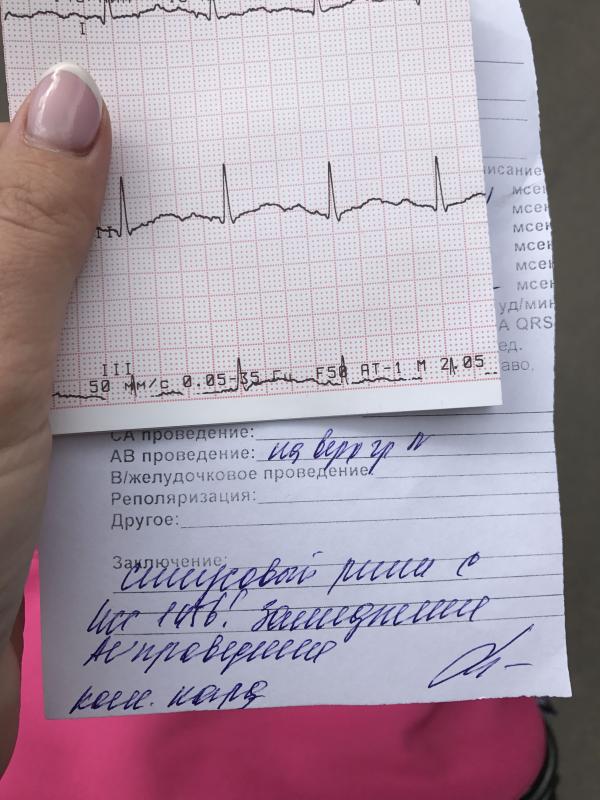 I
II
III
50 мм/с 0.05-35 Гц F50 АТ-1 М 2.05
исание
мсек
мсек
мсек
мсек
мсек
уд/мин
А QRS
ед.
аво,
СА проведение:
АВ проведение: на верх гр N
В/желудочковое проведение
Реполяризация:
Другое:
Заключение:
синусовый ритм с
чсс ! замедление
АV проведения
кон. кард